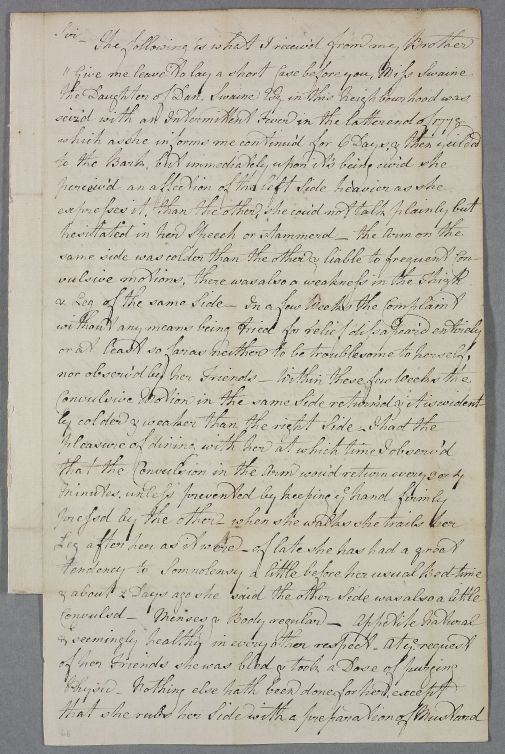 Sir— The following is what I receiv'd from my Brother
" Give me leave to lay a short Case before you, Miss Swaine
the Daughter of Dan. Swaine Esq. in this Neighbourhood was
seiz'd with an Intermittent Fever in the latter end of 1778
which as she informs me continu'd for 6 Days, & then yielded
to the Bark, but immediately upon its being cur'd she
perceiv'd an affection of the left Side heavier as she
expresses it, than the other, she cou'd not talk plainly but
hesitated in her Speech or stammerd— the Arm on the
same side was colder than the other & liable to frequent Con-
vulsive motions, there was also a weakness in the Thigh
& Leg of the same Side— In a few Weeks the Complaint
without any means being tried for relief dissapeard entirely
or at least so far as neither to be troublesome to herself,
nor observ'd by her Friends— Within these few Weeks the
Convulsive Motion in the same Side return'd & it is evident-
ly colder & weaker than the right Side— I had the
Pleasure of dining with her at which time I observ'd
that the Convulsion in the Arm wou'd return every 3 or 4
Minutes, unless prevented by keeping ye hand firmly
press'd by the other— when she walks she trails her
Leg after her as it were— of late she has had a great
tendency to Somnolensy a little before her usual Bed time
& about 2 Days ago she said the other Side was also a little
Convulsd— Menses & Body regular— Appetite natural
& seemingly healthy in every other respect— At ye request
of her Friends she was bled & took a Dose of purging
Physic— Nothing else hath been done for her, except
that she rubs her Side with a preparation of Mustard